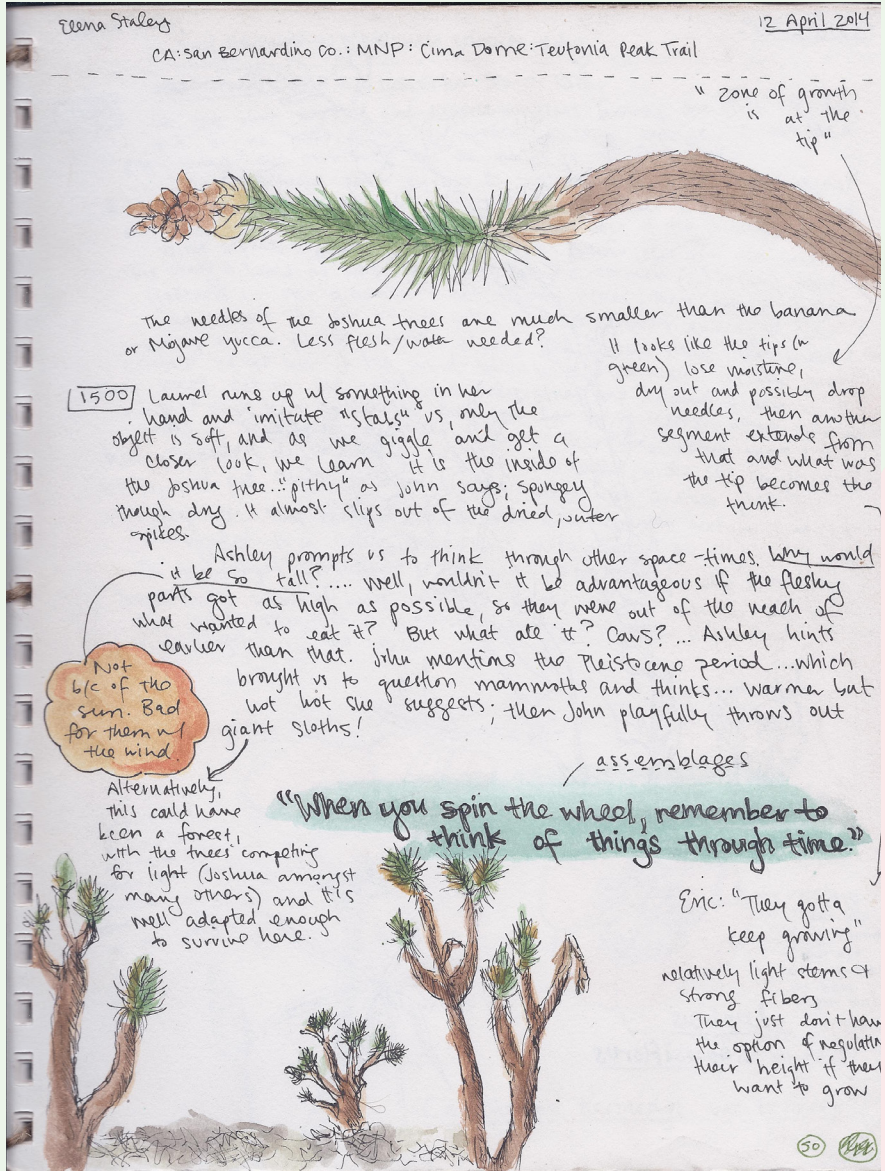 Elena Staley
12 April 2014
CA: San Bernardino Co.: MNP: Cima Dome: Teutonia Peak Trail
"zone of growth
is at the
tip"
The needles of the Joshua trees are much smaller than the banana
or Mojave yucca. Less flesh/water needed?
It looks like the tips (in
green) lose moisture,
dry out and possibly drop
needles, then another
segment extends from
that and what was
the tip becomes the
trunk.
1500 Laurel runs up w/ something in her
hand and imitate "stabs" us, only the
object is soft, and as we giggle and get a
closer look, we learn it is the inside of
the Joshua tree... "pithy" as John says; spongey
though dry. It almost slips out of the dried, outer
spikes.
Ashley prompts us to think through other space-times. Why would
it be so tall?.... Well, wouldn't it be advantageous if the fleshy
parts got as high as possible, so they were out of the reach of
what wanted to eat it? But what ate it? Cows?... Ashley hints
earlier than that. John mentions the Pleistocene period...which
brought us to question mammoths and thinks... warmer but
not hot she suggests; then John playfully throws out
giant sloths!
Not
b/c of the
sun. Bad
for them w/
the wind.
Alternatively,
this could have
been a forest,
with the trees competing
for light (Joshua amongst
many others) and it's
well adapted enough
to survive here.
assemblages
"When you spin the wheel, remember to
think of things through time."
Eric: "They gotta
keep growing"
relatively light stems &
strong fibers
They just don't have
the option of regulatin
their height if they
want to grow
50